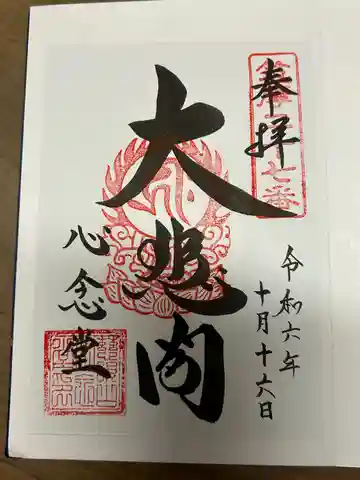 奉拝
令和六年
十月十六日
大悲閣
心念堂